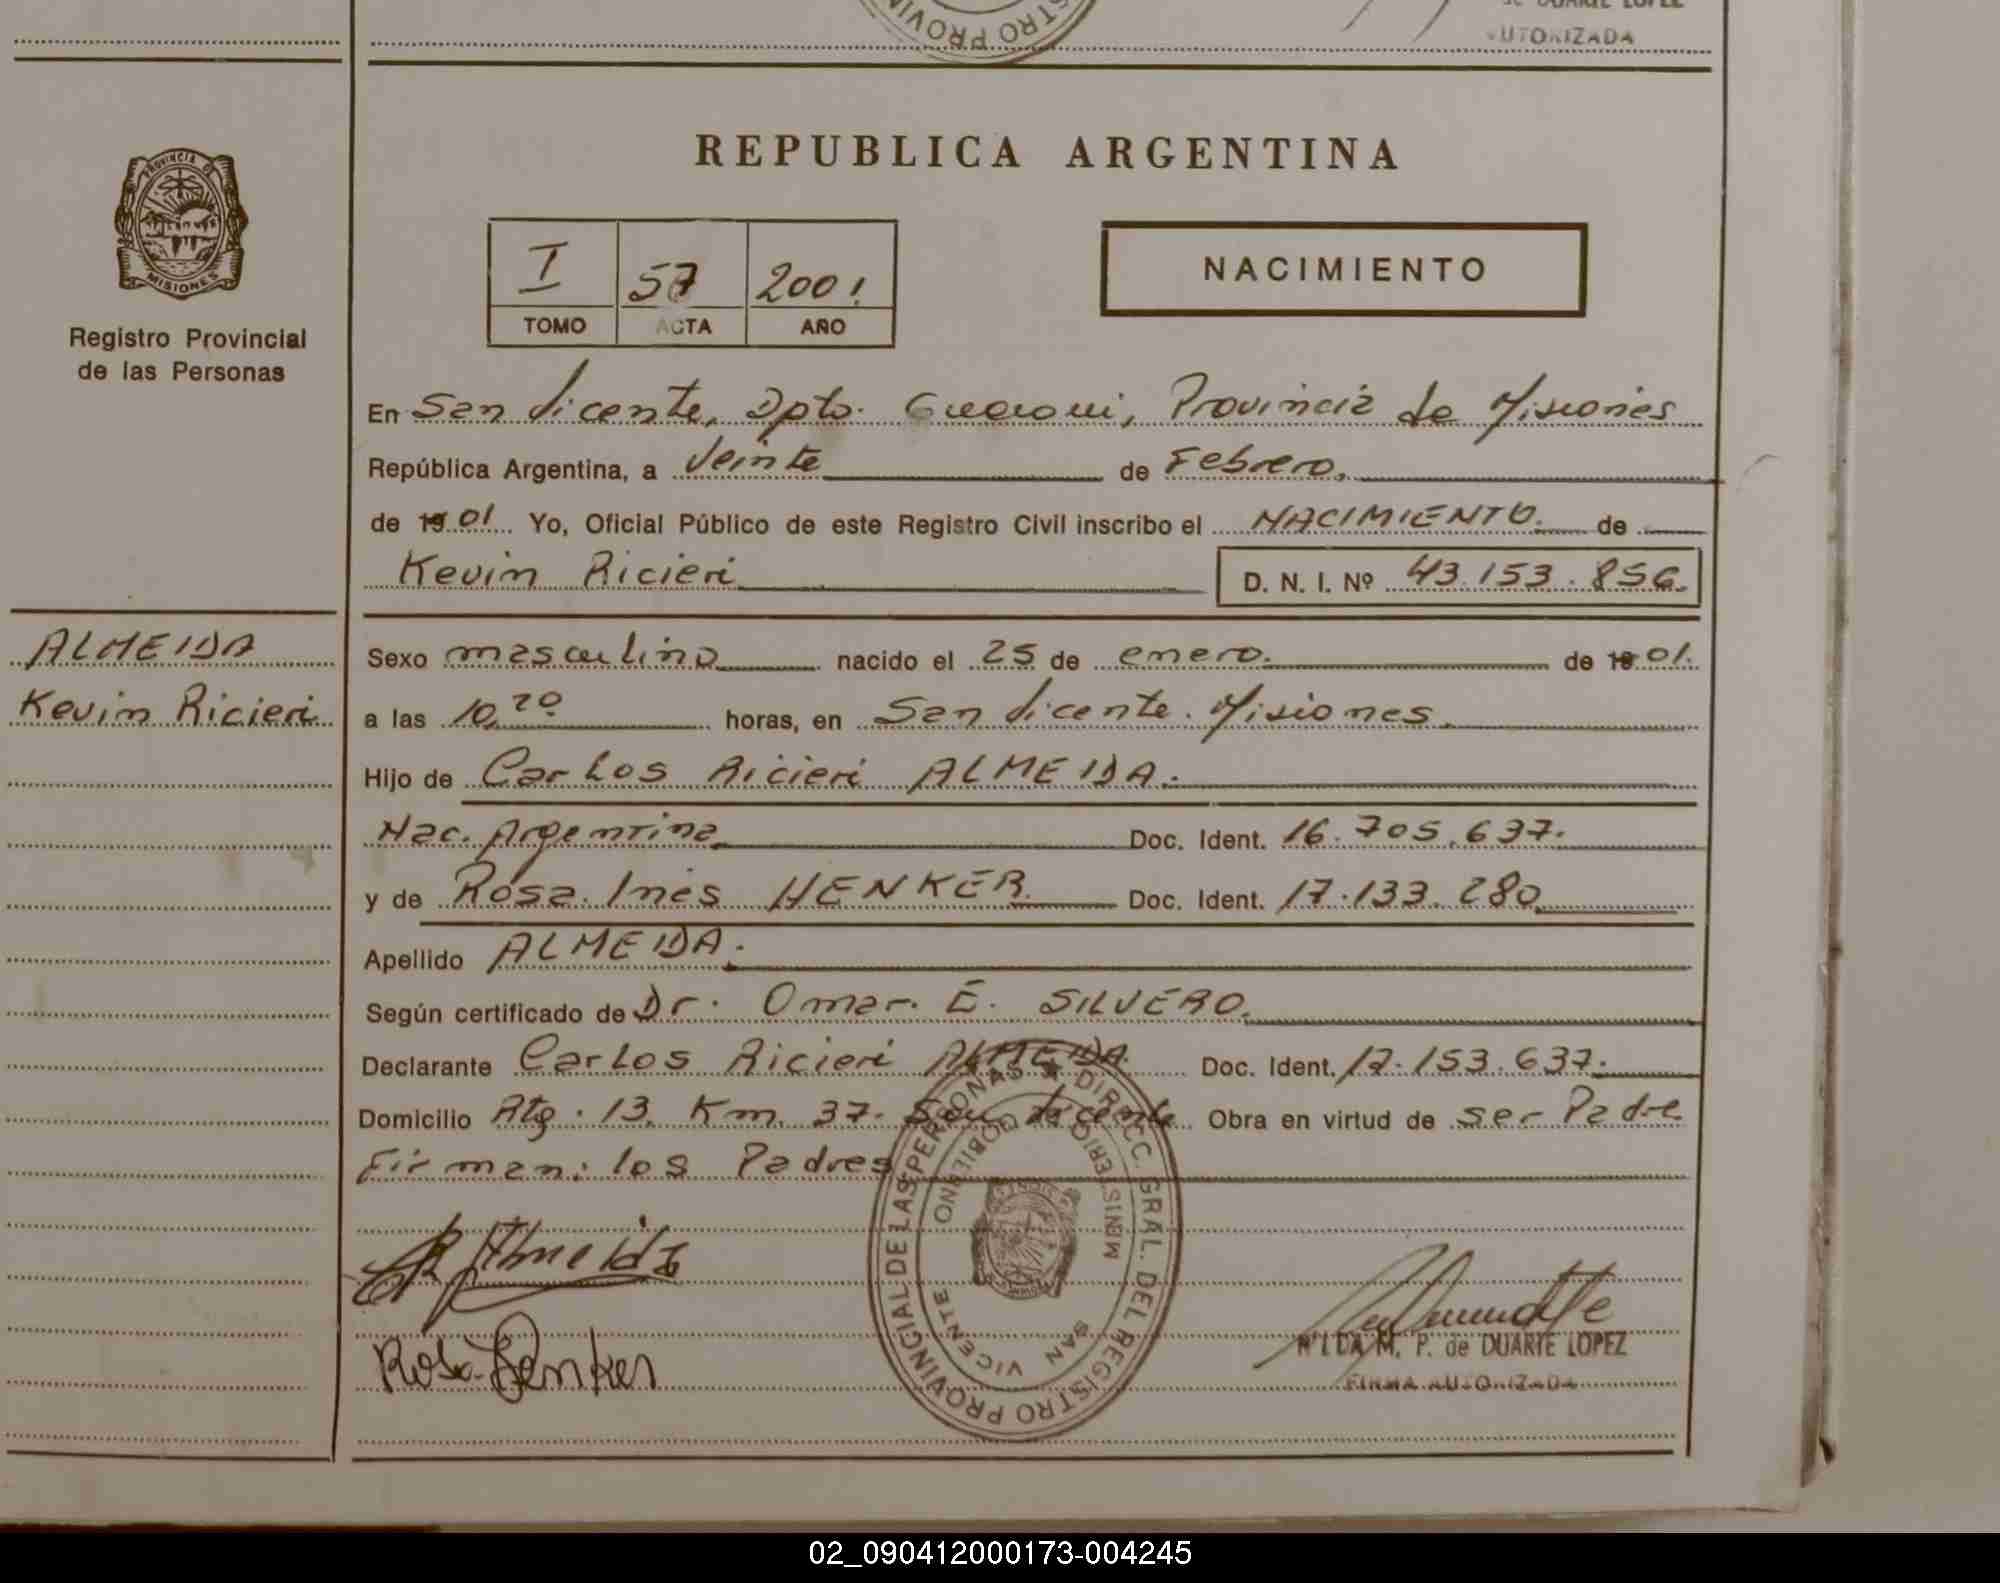 DE DUARTE LOPEZ
AUTORIZADA
REGISTRO PROVIN
REPUBLICA ARGENTINA
PROVINCIA DE
MISIONES
Registro Provincial
de las Personas
I 57 2001
TOMO ACTA AÑO
NACIMIENTO
En San Vicente, Dpto. Guarani, Provincia de Misiones
República Argentina, a Veinte de Febrero.
de 1901 Yo, Oficial Público de este Registro Civil inscribo el NACIMIENTO. de
Kevin Ricieri D. N. I. Nº 43.153.856.
ALMEIDA
Kevin Ricieri
Sexo masculino nacido el 25 de enero. de 1901.
a las 10,20 horas, en San Vicente. Misiones.
Hijo de Carlos Ricieri ALMEIDA.
Nac. Argentina Doc. Ident. 16.705.637.
y de Rosa Inés HENKER Doc. Ident. 17.133.280
Apellido ALMEIDA.
Según certificado de Dr. Omar. E. SILVERO.
Declarante Carlos Ricieri ALMEIDA Doc. Ident. 17.153.637.
Domicilio Rta. 13. Km. 37. San Vicente Obra en virtud de ser Padre
Firman: los Padres
Almeida
Rosa Henker
DIRECC. GRAL. DEL REGISTRO PROVINCIAL DE LAS PERSONAS
MINISTERIO GOBIERNO
SAN VICENTE
M. P. de DUARTE LOPEZ
FIRMA AUTORIZADA
02_090412000173-004245